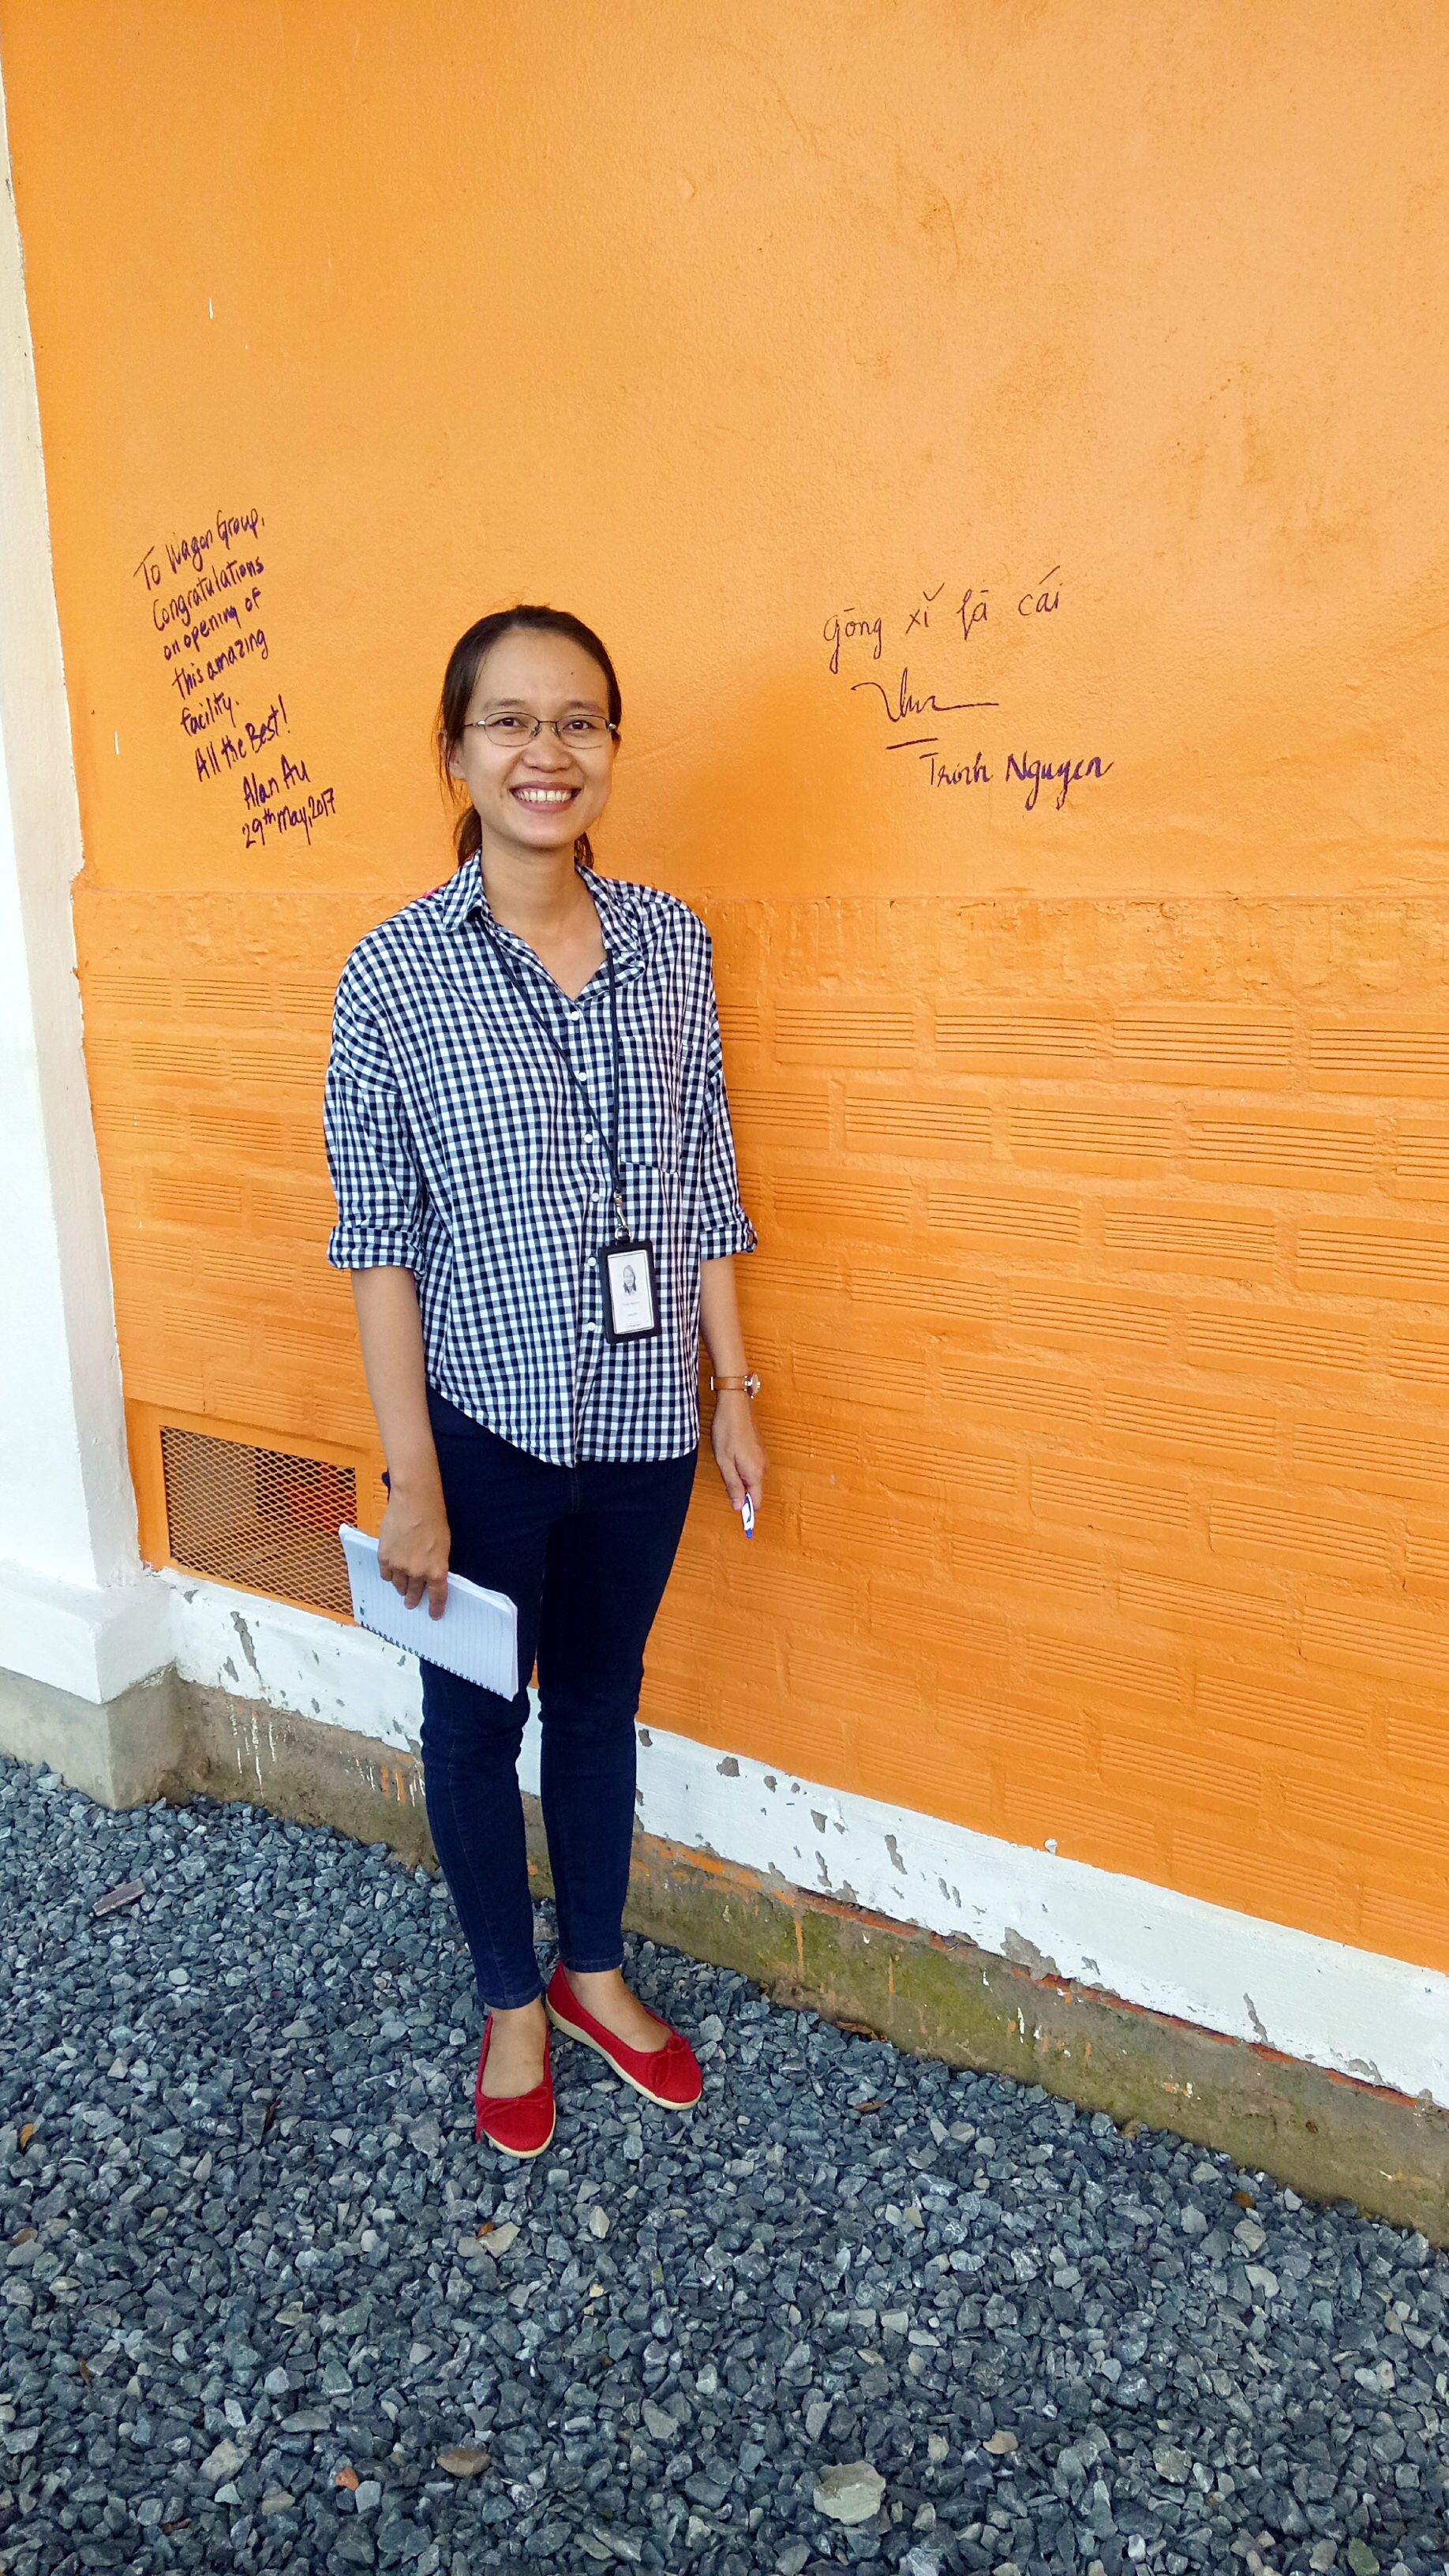 To Wagon Group,
Congratulations
on opening of
this amazing
facility.
All the Best!
Alan Au
29th May, 2017
gōng xǐ fā cái
Trinh Nguyen